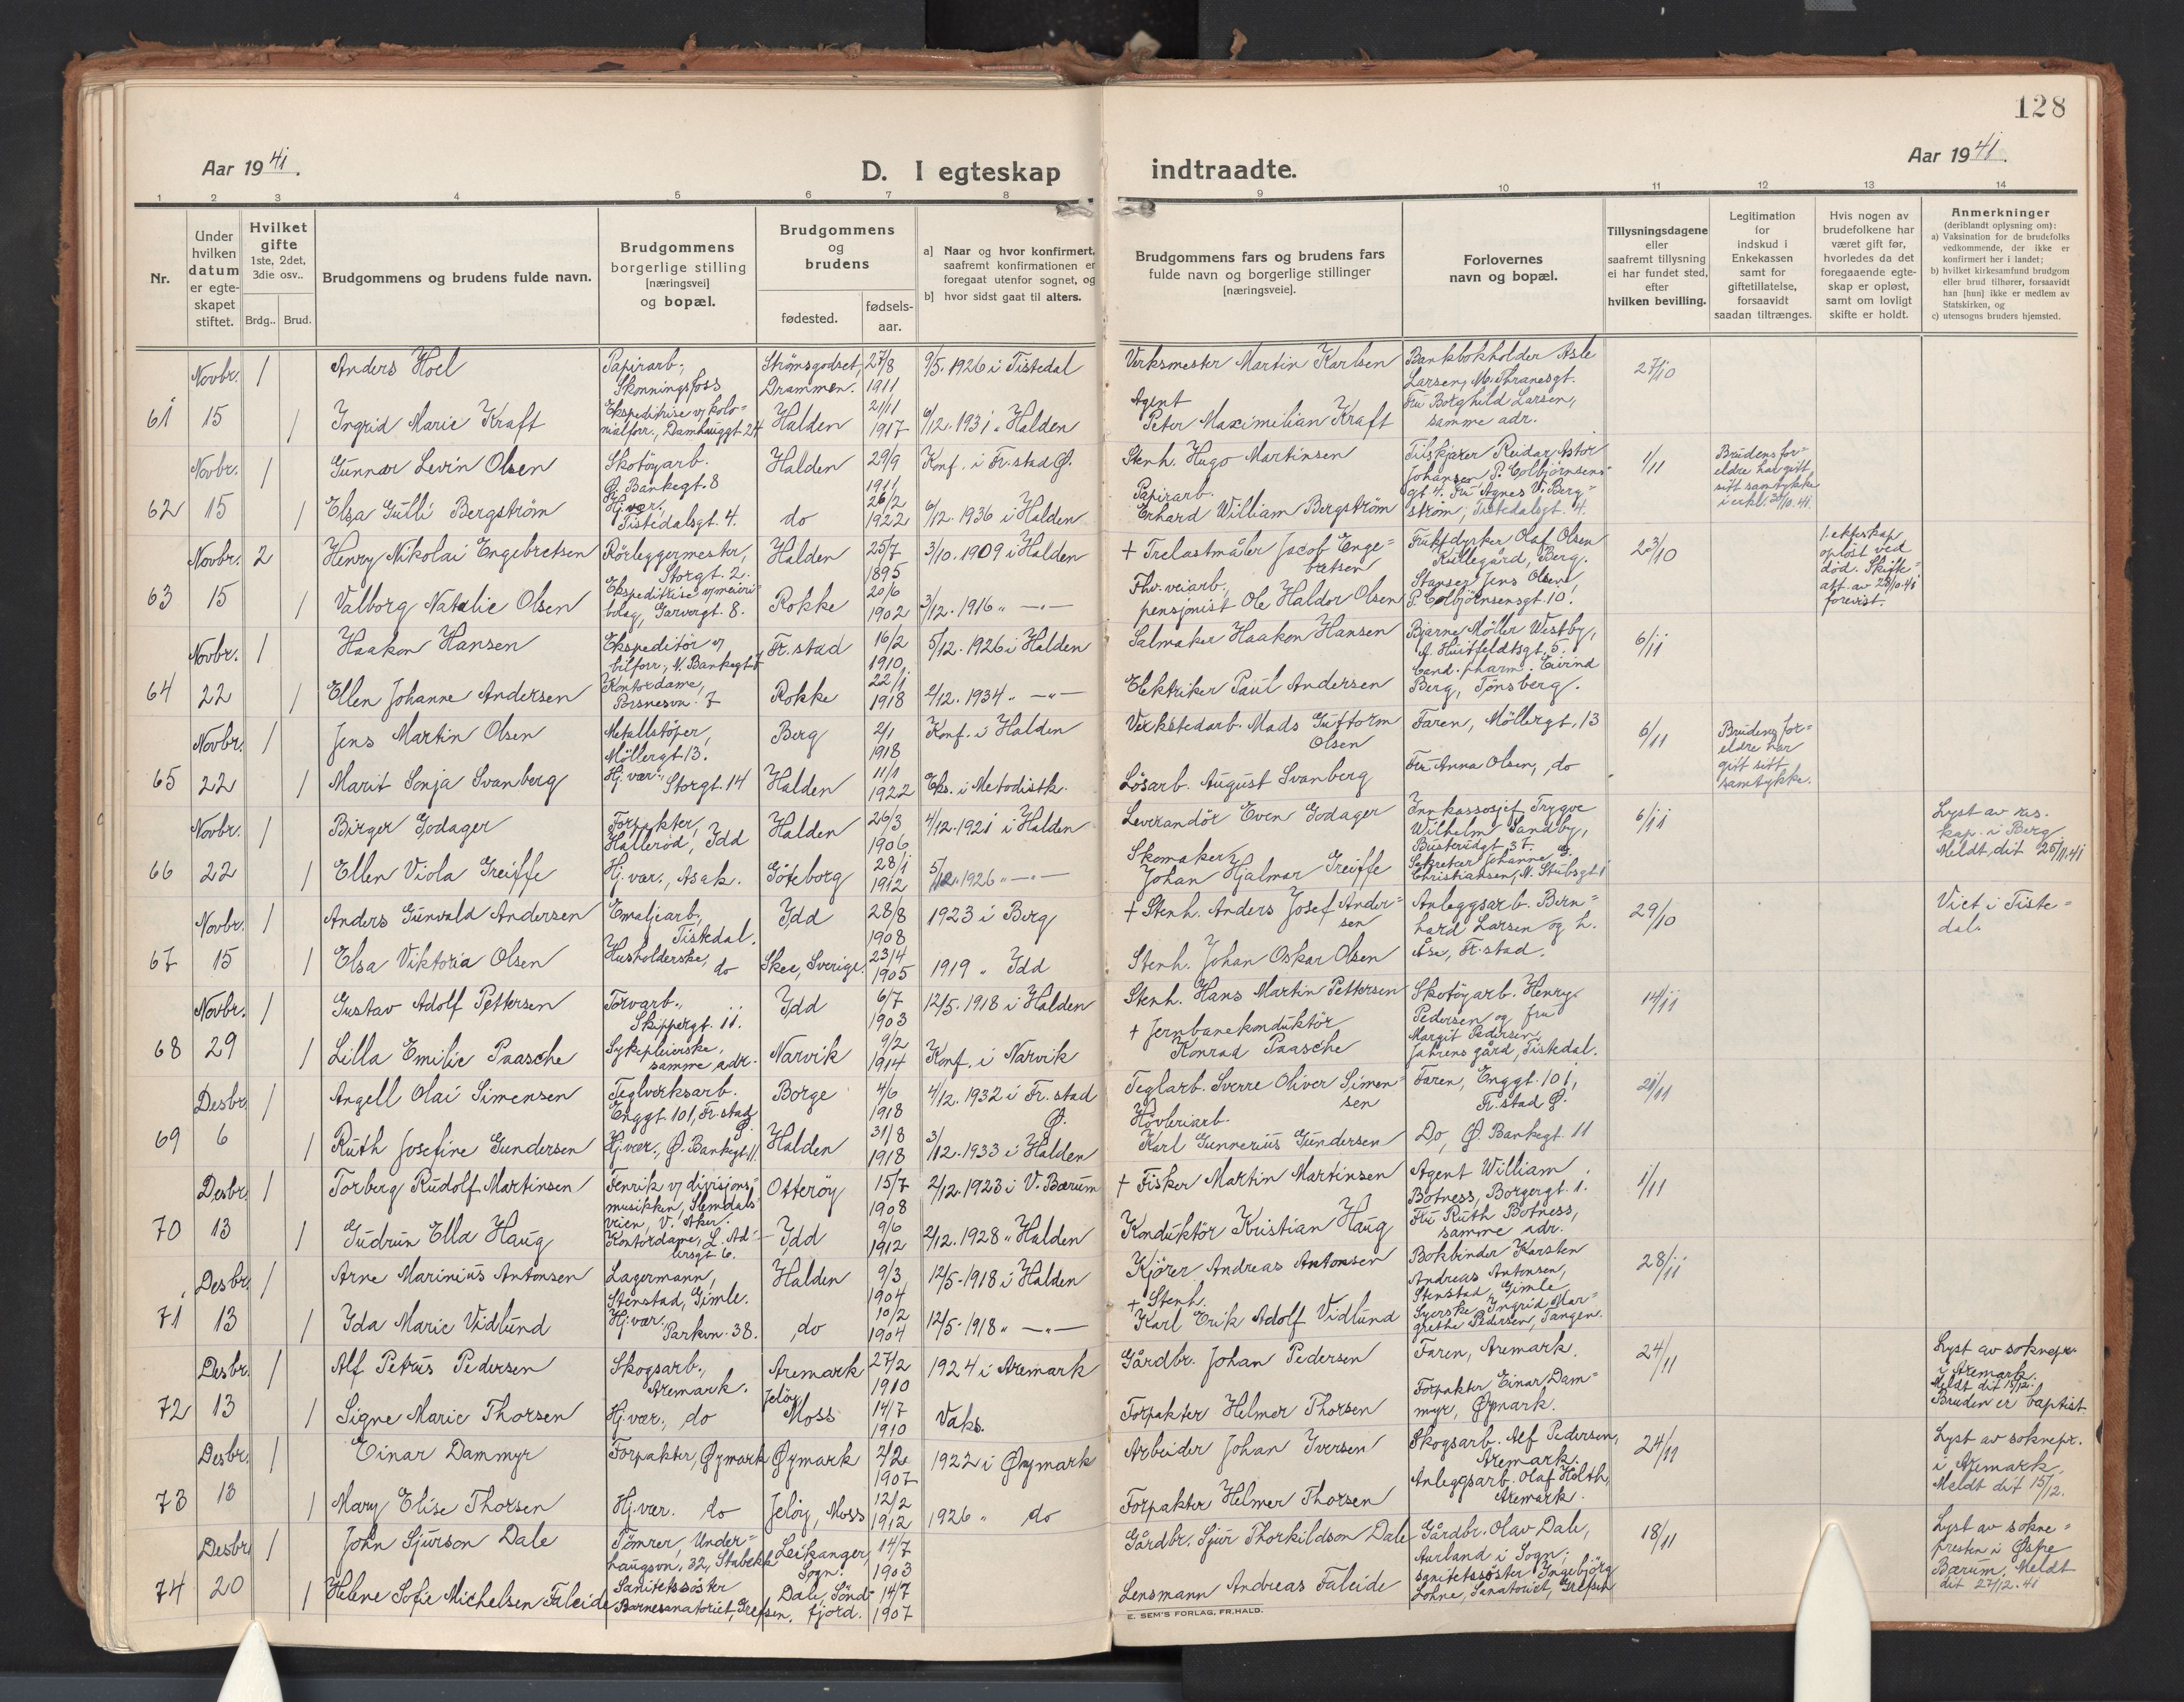 128
Aar 1941.
D. I egteskap indtraadte.
Aar 1941.
1 2 3 4 5 6 7 8 9 10 11 12 13 14
Nr.
Under hvilken datum er egteskapet stiftet.
Hvilket gifte 1ste, 2det, 3die osv..
Brdg.. Brud.
Brudgommens og brudens fulde navn.
Brudgommens borgerlige stilling [næringsvei] og bopæl.
Brudgommens og brudens
fødested.
fødselsaar.
a] Naar og hvor konfirmert, saafremt konfirmationen er foregaat utenfor sognet, og
b] hvor sidst gaat til alters.
Brudgommens fars og brudens fars fulde navn og borgerlige stillinger [næringsveie].
Forlovernes navn og bopæl.
Tillysningsdagene eller saafremt tillysning ei har fundet sted, efter hvilken bevilling.
Legitimation for indskud i Enkekassen samt for giftetillatelse, forsaavidt saadan tiltrænges.
Hvis nogen av brudefolkene har været gift før, hvorledes da det foregaaende egteskap er opløst, samt om lovligt skifte er holdt.
Anmerkninger (deriblandt oplysning om):
a) Vaksination for de brudefolks vedkommende, der ikke er konfirmert her i landet;
b) hvilket kirkesamfund brudgom eller brud tilhører, forsaavidt han [hun] ikke er medlem av Statskirken, og
c) utensogns bruders hjemsted.
Novbr. 1 Anders Hoel Papirarb., Skonningsfoss Strømsgodset, Drammen. 27/8 1911 9/5. 1926 i Tistedal Verksmester Martin Karlsen Bankbokholder Asle Larsen, M. Thranesgt. 27/10
61 15 1 Ingrid Marie Kraft Ekspeditrise v/ kolonialforr., Damhauggt. 24 Halden 21/11 1917 6/12. 1931 i Halden Agent Peter Maximilian Kraft Fru Borghild Larsen, samme adr.
Novbr. 1 Gunnar Levin Olsen Skotøyarb. Ø. Bankegt. 8 Halden 29/9 1911 Konf. i Fr.stad Ø. Stenh. Hugo Martinsen Tilskjærer Reidar Astor Johansen P. Colbjørnsensgt. 4. 1/11 Brudens foreldre har gitt sitt samtykke i erkl. 30/10. 41.
62 15 1 Elsa Gulli Bergstrøm Hj.vær. Tistedalsgt. 4. do 26/2 1922 6/12. 1936 i Halden Papirarb. Erhard William Bergstrøm Fru Agnes V. Bergstrøm, Tistedalsgt. 4.
Novbr. 2 Henry Nikolai Engebretsen Rørleggermester, Storgt. 2. Halden 25/7 1895 3/10. 1909 i Halden + Trelastmåler Jacob Engebretsen Fruktdyrker Olaf Olsen Kullegård, Berg. 23/10 1. ekteskap opløst ved død. Skifteatt. av 23/10.41 forevist.
63 15 1 Valborg Natalie Olsen Ekspeditrise v/ meieribolag, Garvergt. 8. Rokke 20/6 1902 3/12. 1916 " —"— Fhv. veiarb., pensjonist Ole Haldor Olsen Stanser Jens Olsen, P. Colbjørnsensgt. 10.
Novbr. 1 Haakon Hansen Ekspeditør v/ bilforr., N. Bankegt. Fr.stad 16/2 1910 5/12. 1926 i Halden Salmaker Haakon Hansen Bjarne Møller Westby, A. Huitfeldtsgt. 5. 6/11
64 22 1 Ellen Johanne Andersen Kontordame, 7 Rokke 22/1 1918 2/12. 1934 " —"— Elektriker Paul Andersen Cand. pharm. Eivind Berg, Tønsberg.
Novbr. 1 Jens Martin Olsen Metallstøper, Møllergt. 13. Berg 2/1 1918 Konf. i Halden Verkstedarb. Mads Guttorm Olsen Faren, Møllergt. 13 6/11 Brudens foreldre har gitt sitt samtykke.
65 22 1 Marit Sonja Svanberg Hj.vær., Storgt. 14 Halden 11/1 1922 Eks. i Metodistk. Løsarb. August Svanberg Fru Anna Olsen, do
Novbr. 1 Birger Godager Forpakter, Hallerød, Idd Halden 26/3 1906 4/12. 1921 i Halden Leverandør Even Godager Innkassosjef Trygve Wilhelm Sandby, Busterudgt. 37. 6/11 Lyst av res. kap. i Berg Meldt dit 25/11.41
66 22 1 Ellen Viola Greiffe Hj.vær., Asak. Göteborg 28/1 1912 5/12. 1926 " —"— Skomaker Johan Hjalmar Greiffe Sekretær Johanne G. Christiansen, N. Stubsgt. 1
Novbr. 1 Anders Gunvald Andersen Emaljearb., Tistedal. Idd 28/8 1908 1923 i Berg + Stenh. Anders Josef Andersen Anleggsarb. Bernhard Larsen og h. 29/10 Viet i Tistedal.
67 15 1 Elsa Viktoria Olsen Husholderske, do Skee, Sverige. 23/4 1905 1919 " Idd Stenh. Johan Oskar Olsen Åse, Fr.stad.
Novbr. 1 Gustav Adolf Pettersen Torvarb., Skippergt. 11. Idd 6/7 1903 12/5. 1918 i Halden Stenh. Hans Martin Pettersen Skotøyarb. Henry Pedersen og fru 14/11
68 29 1 Lilla Emilie Paasche Sykepleierske, samme adr. Narvik 9/2 1914 Konf. i Narvik + Jernbanekonduktør Konrad Paasche Margit Pedersen, Jahrens gård, Tistedal.
Desbr. 1 Angell Olai Simensen Teglverksarb. Enggt. 101, Fr.stad Ø. Borge 4/6 1918 4/12. 1932 i Fr.stad Ø. Teglarb. Sverre Oliver Simensen Faren, Enggt. 101, Fr.stad Ø. 21/11
69 6 1 Ruth Josefine Gundersen Hj.vær., Ø. Bankegt. 11. Halden 31/8 1918 3/12. 1933 i Halden Høvleriarb. Karl Gunnerius Gundersen Do, Ø. Bankegt. 11
Desbr. 1 Torberg Rudolf Martinsen Fenrik v/ divisjonsmusikken, Slemdalsveien, V. Aker. Otterøy 15/7 1908 2/12. 1923 i V. Bærum + Fisker Martin Martinsen Agent William Botness, Borgergt. 1. 1/11
70 13 1 Gudrun Ella Haug Kontordame, L. Adlersgt. 6. Idd 9/6 1912 2/12. 1928 " Halden Konduktør Kristian Haug Fru Ruth Botness, samme adr.
Desbr. 1 Arne Marinius Antonsen Lagermann, Stenstad, Gimle. Halden 9/3 1904 12/5. 1918 i Halden Kjører Andreas Antonsen Bokbinder Karsten Andreas Antonsen, Stenstad, Gimle 28/11
71 13 1 Ida Marie Vidlund Hj.vær. Parkvn. 38. do 10/2 1904 12/5. 1918 " —"— + Stenh. Karl Erik Adolf Vidlund Syerske Ingrid Margrethe Pedersen, Tangen.
Desbr. 1 Alf Petrus Pedersen Skogsarb., Aremark. Aremark 27/2 1910 1924 i Aremark Gårdbr. Johan Pedersen Faren, Aremark. 24/11 Lyst av soknepr. i Aremark. Meldt dit 15/12. Bruden er baptist
72 13 1 Signe Marie Thorsen Hj.vær., do Jeløy Moss 14/7 1910 Vaks. Forpakter Helmer Thorsen Forpakter Einar Dammyr, Øymark.
Desbr. 1 Einar Dammyr Forpakter, Øymark Øymark 2/2 1907 1922 i Øymark Arbeider Johan Iversen Skogsarb. Alf Pedersen, Aremark. 24/11 Lyst av soknepr. i Aremark. Meldt dit 15/12.
73 13 1 Mary Elise Thorsen Hj.vær. do Jeløy, Moss 12/2 1912 1926 " do Forpakter Helmer Thorsen Anleggsarb. Olaf Holth, Aremark.
Desbr. 1 John Sjurson Dale Tømrer, Underhaugsvn. 32, Stabekk Leikanger, Sogn. 14/7 1903 Gårdbr. Sjur Thorkildson Dale Gårdbr. Olav Dale, Aurland i Sogn; 18/11 Lyst av soknepresten i Østre Bærum. Meldt dit 27/12. 41
74 20 1 Helene Sofie Michelsen Faleide Sanitetssøster Barnesanatoriet, Grefsen. Dale, Søndfjord. 14/7 1907 Lensmann Andreas Faleide sanitetssøster Ingebjørg Lohne, Sanatoriet, Grefsen
E. SEM'S FORLAG, FR.HALD.